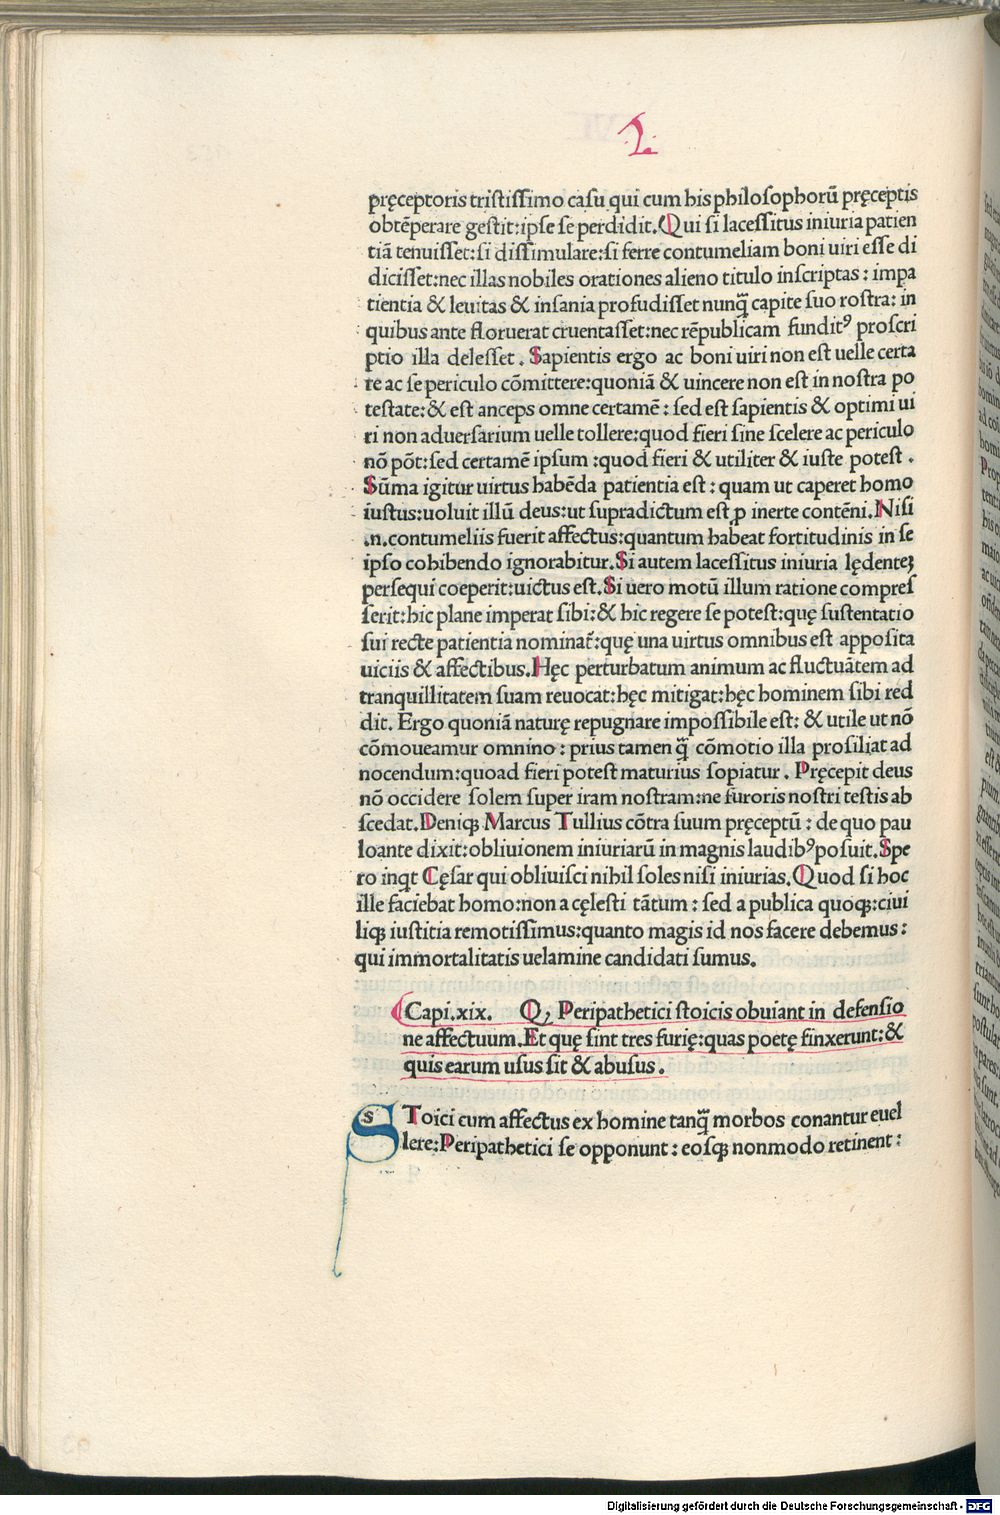 L
pręceptoris tristissimo casu qui cum his philosophorū pręceptis
obtēperare gestit:ipse se perdidit. Qui si lacessitus iniuria patien
tiā tenuisset:si dissimulare:si ferre contumeliam boni uiri esse di
dicisset:nec illas nobiles orationes alieno titulo inscriptas: impa
tientia & leuitas & insania profudisset nunq̄ capite suo rostra: in
quibus ante floruerat cruentasset:nec rēpublicam funditꝰ proscri
ptio illa delesset. Sapientis ergo ac boni uiri non est uelle certa
re ac se periculo cōmittere:quoniā & uincere non est in nostra po
testate:& est anceps omne certamē: sed est sapientis & optimi ui
ri non aduersarium uelle tollere:quod fieri sine scelere ac periculo
nō pōt:sed certamē ipsum :quod fieri & utiliter & iuste potest.
Sūma igitur uirtus habēda patientia est: quam ut caperet homo
iustus:uoluit illū deus:ut supradictum est ꝓ inerte contēni. Nisi
.n.contumeliis fuerit affectus:quantum habeat fortitudinis in se
ipso cohibendo ignorabitur. Si autem lacessitus iniuria lędenteꝫ
persequi coeperit:uictus est. Si uero motū illum ratione compres
serit:hic plane imperat sibi:& hic regere se potest:quę sustentatio
sui recte patientia nominat̄:quę una uirtus omnibus est apposita
uiciis & affectibus. Hęc perturbatum animum ac fluctuātem ad
tranquillitatem suam reuocat:hęc mitigat:hęc hominem sibi red
dit. Ergo quoniā naturę repugnare impossibile est: & utile ut nō
cōmoueamur omnino: prius tamen q̄ cōmotio illa prosiliat ad
nocendum:quoad fieri potest maturius sopiatur. Pręcepit deus
nō occidere solem super iram nostram:ne furoris nostri testis ab
scedat. Deniqꝫ Marcus Tullius cōtra suum pręceptū: de quo pau
loante dixit:obliuionem iniuriarū in magnis laudibꝰ posuit. Spe
ro inqt Cęsar qui obliuisci nihil soles nisi iniurias. Quod si hoc
ille faciebat homo:non a cęlesti tātum: sed a publica quoqꝫ:ciui
liqꝫ iustitia remotissimus:quanto magis id nos facere debemus:
qui immortalitatis uelamine candidati sumus.
Capi.xix. Qꝫ Peripathetici stoicis obuiant in defensio
ne affectuum. Et quę sint tres furię:quas poetę finxerunt:&
quis earum usus sit & abusus.
S s Toici eum affectus ex homine tanq̄ morbos conantur euel
lere:Peripathetici se opponunt: eosqꝫ nonmodo retinent:
Digitalisierung gefördert durch die Deutsche Forschungsgemeinschaft - DFG